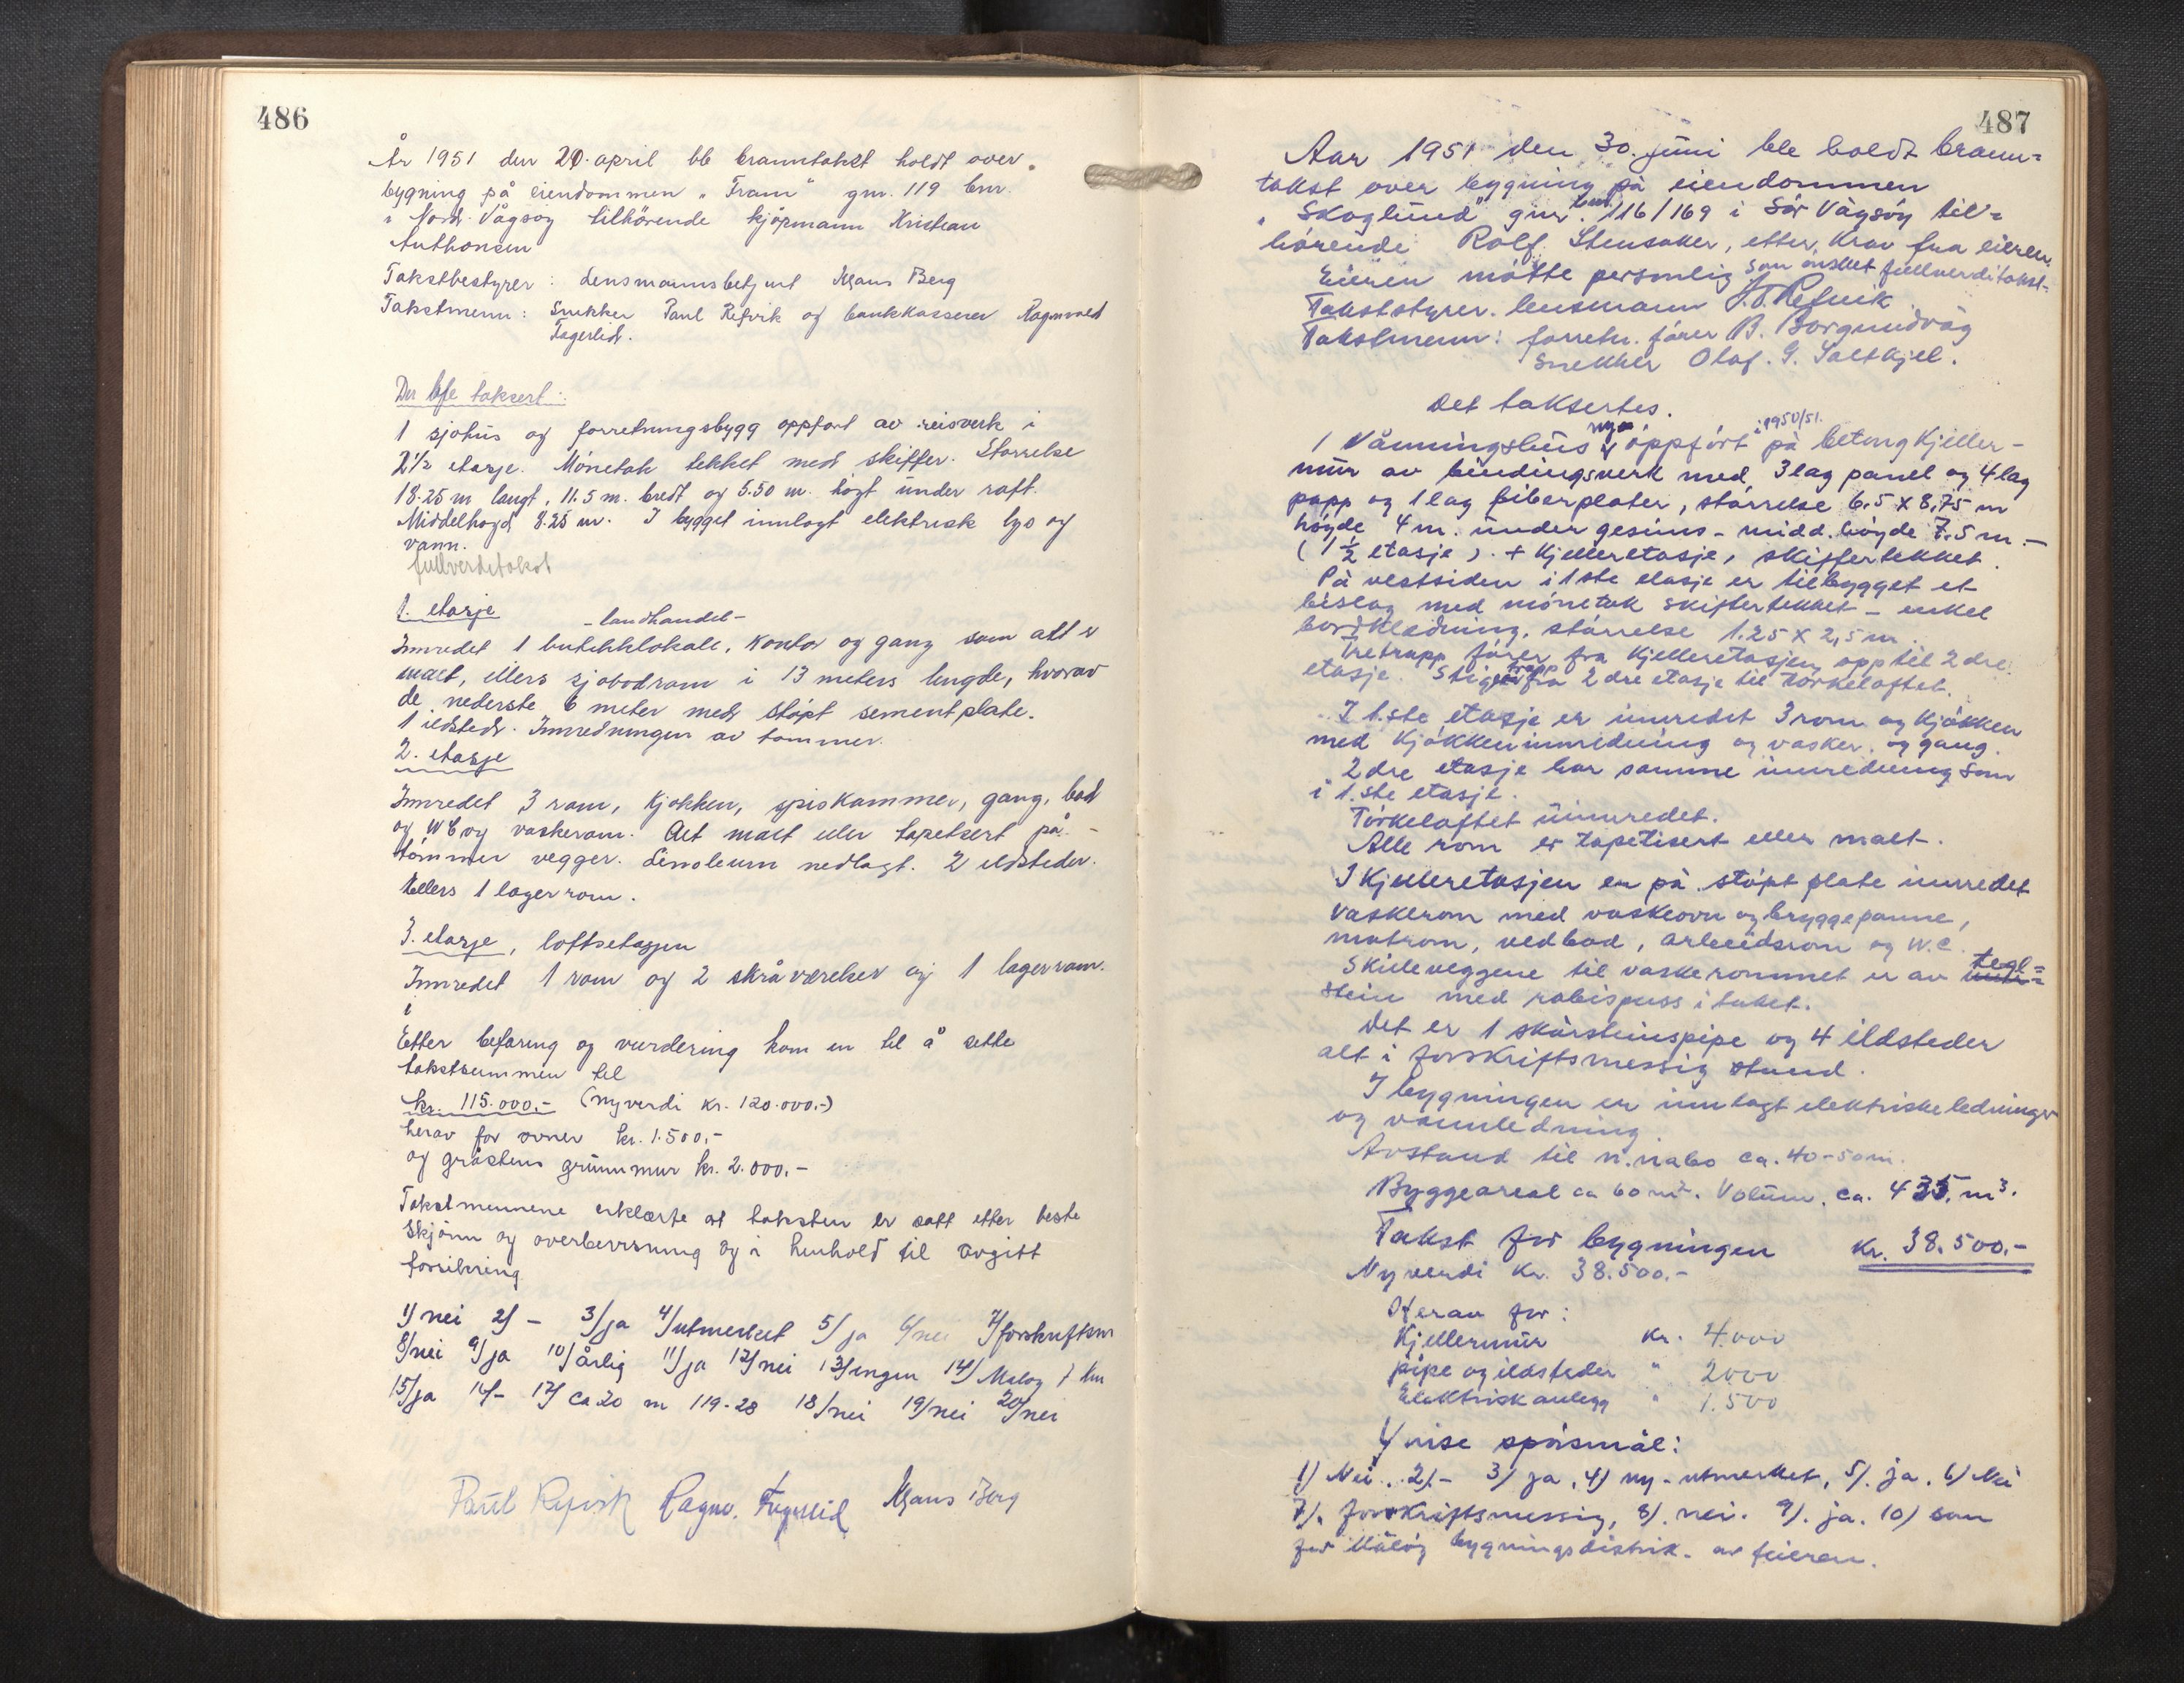 486
År 1951 den 20. april ble branntakst holdt over
bygning på eiendommen "Fram" gnr. 119 bnr.
i Nord-Vågsøy tilhörende kjöpmann Kristian
Anthonsen
Takstbestyrer: Lensmannsbetjent Klaus Berg
Takstmenn: Snekker Paul Refvik og bankkasserer Ragnvald
Fagerlid.
Der ble taksert:
1 sjøhus og forretningsbygg oppført av reisverk i
2½ etasje. Mönetak tekket med skiffer. Størrelse
18.25 m langt, 11.5 m. bredt og 5.50 m. högt under raft.
Middelhøgd 8.25 m. I bygget innlagt elektrisk lys og
vann.
fullverditakst
1. etasje - landhandel -
Innredet 1 butikklokale, kontor og gang som alt er
malt, ellers sjøbodrom i 13 meters lengde, hvorav
de nederste 6 meter med støpt sementplate.
1 ildsted. Innredningen av tømmer.
2. etasje
Innredet 3 rom, kjøkken, spiskammer, gang, bad
og WC og vaskerom. Alt malt eller tapetsert på
tömmer vegger. Linoleum nedlagt. 2 ildsteder.
Ellers 1 lagerrom.
3. etasje, loftsetasjen
Innredet 1 rom og 2 skråværelser og 1 lagerrom.
i
Etter befaring og vurdering kom en til å sette
takstsummen til
kr. 115.000,- (nyverdi kr. 120.000,-)
herav for ovner kr. 1.500,-
og gråstens grunnmur kr. 2.000,-
Takstmennene erklærte at taksten er satt etter beste
skjönn og overbevisning og i henhold til avgitt
forsikring
1/ nei 2/ - 3/ ja 4/ utmerket 5/ ja 6/ nei 7/ forskriftsm
8/ nei 9/ ja 10/ årlig 11/ ja 12/ nei 13/ ingen 14/ Måløy 7 km
15/ ja 16/ - 17/ ca 20 m 119-28 18/ nei 19/ nei 20/ nei
Paul Refvik Ragnv. Fagerlid Klaus Berg
487
Aar 1951 den 30. juni ble holdt brann-
takst over bygning på eiendommen
"Skoglund" gnr. bnr. 116/169 i Sör Vågsöy til-
hörende Rolf Stensaker, etter krav fra eieren
som önsket fullverditakst.
Eieren mötte personlig
Takststyrer. lensmann J. T. Refvik
Takstmenn: forretn. förer B. Borgundvåg
snekker Olaf. G. Saltkjel.
Det taksertes.
1 Vånningshus nye oppfört i 1950/51. på betong kjeller-
mur av bindingsverk med 3 lag panel og 4 lag
papp og 1 lag fiberplater, størrelse 6,5 x 8,75 m
höyde 4 m. under gesims - midd. höyde 7.5 m. -
(1½ etasje). + kjelleretasje, skiffertekket.
På vestsiden i 1ste etasje er tilbygget et
bislag med mönetak skiffertekket - enkel
bordkledning, störrelse 1.25 x 2,5 m.
Tretrapp förer fra kjelleretasjen opp til 2dre
etasje. Stigetrapp fra 2dre etasje til törkeloftet.
I 1.ste etasje er innredet 3 rom og kjökken
med kjökkeninnredning og vasker. og gang.
2dre etasje har samme innredning som
i 1.ste etasje.
Törkeloftet uinnredet.
Alle rom er tapetisert eller malt.
I kjelleretasjen er på stöpt plate innredet
vaskerom med vaskeovn og bryggepanne,
matrom, vedbod, arbeidsrom og W.C.
Skilleveggene til vaskerommet er av tegl-
stein med rabispuss i taket.
Det er 1 skorsteinspipe og 4 ildsteder
alt i forskriftsmessig stand.
I bygningen er innlagt elektriske ledninger
og vannledning.
Avstand til n. nabo ca. 40-50 m.
Byggeareal ca 60 m². Volum. ca. 435 m³.
Takst for bygningen kr. 38.500,-
Nyverdi kr. 38.500,-
Herav for:
Kjellermur kr. 4.000
pipe og ildsteder " 2000
Elektrisk anlegg " 1.500
Visse spörsmål:
1) Nei. 2/- 3/ ja, 4) ny-utmerket, 5/. ja. 6) Nei
7/. forskriftsmessig, 8/. nei. 9/. ja. 10/ som
for Måløy bygningsdistrik. av feieren.